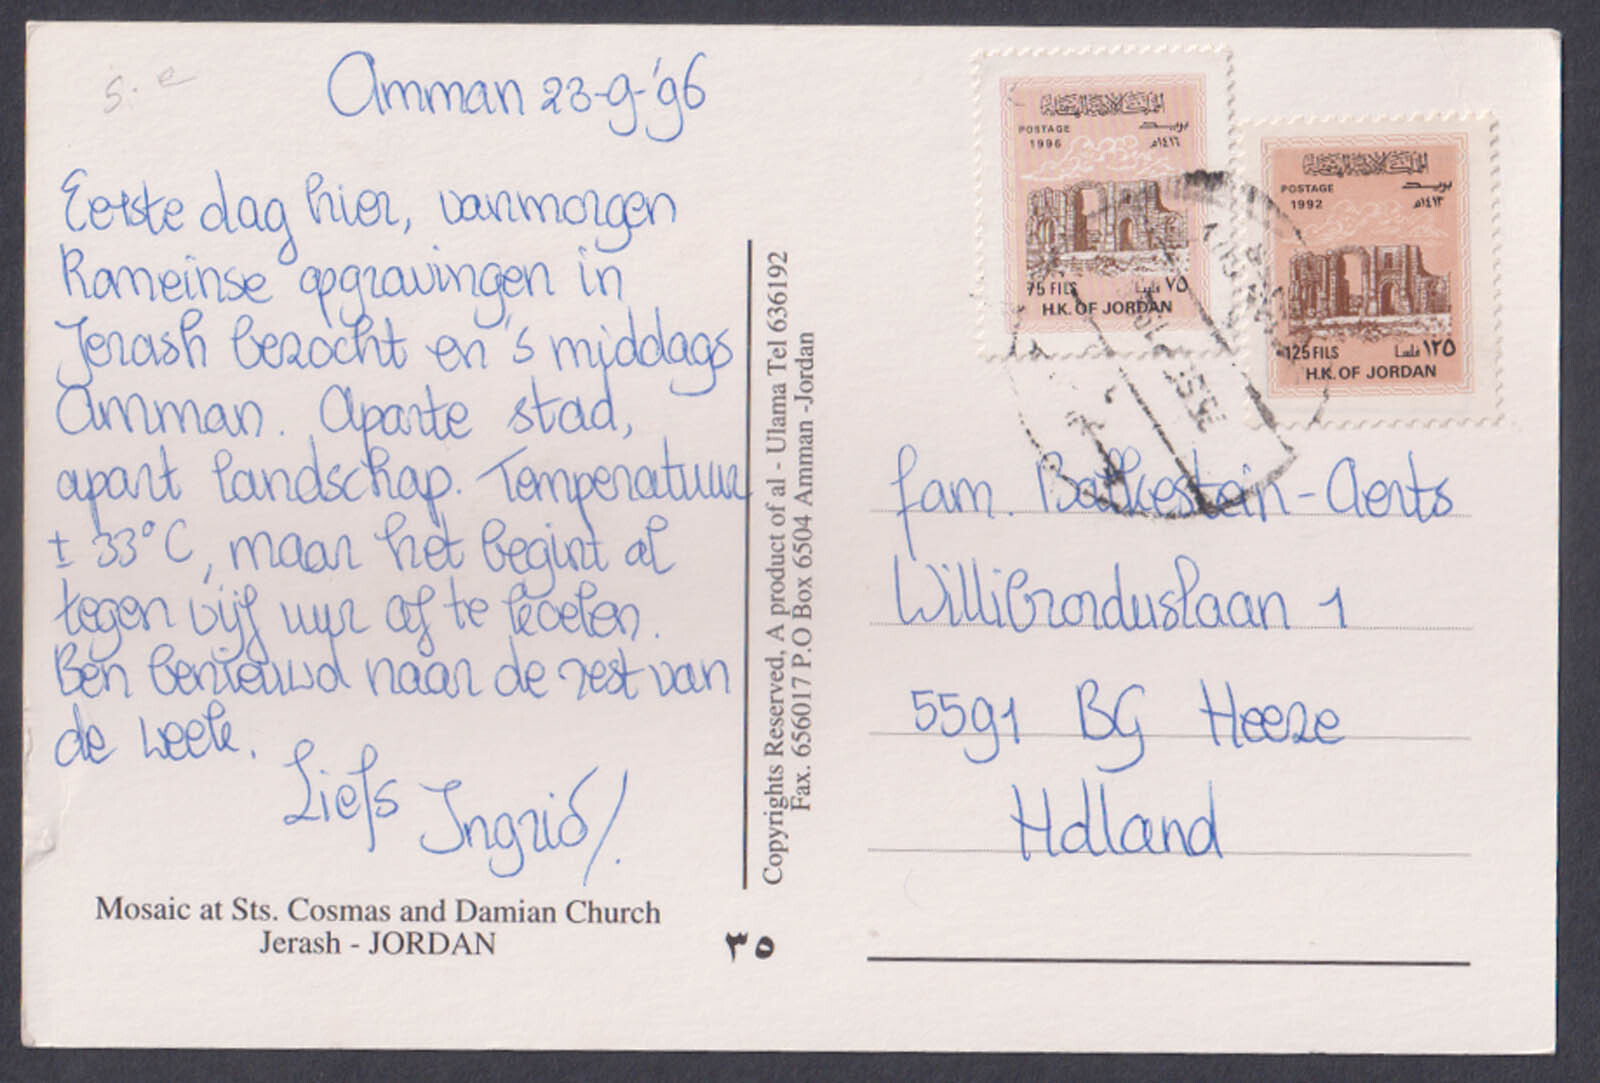 s.e
Amman 23-9-'96
Eerste dag hier, vanmorgen
Romeinse opgravingen in
Jerash bezocht en 's middags
Amman. Aparte stad,
apart landschap. Temperatuur
± 33°C, maar het begint al
tegen vijf uur af te koelen.
Ben benieuwd naar de rest van
de week.
Liefs Ingrid/.
Mosaic at Sts. Cosmas and Damian Church
Jerash - JORDAN
٣٥
Copyrights Reserved, A product of al - Ulama Tel 636192
Fax. 656017 P.O Box 6504 Amman -Jordan
المملكة الأردنية الهاشمية
POSTAGE بريد
1996 ١٤١٦م
75 FILS ٧٥ فلسا
H.K. OF JORDAN
المملكة الأردنية الهاشمية
POSTAGE بريد
1992 ١٤١٣م
125 FILS ١٢٥ فلسا
H.K. OF JORDAN
fam. -Aerts
Willibrorduslaan 1
5591 BG Heeze
Holland